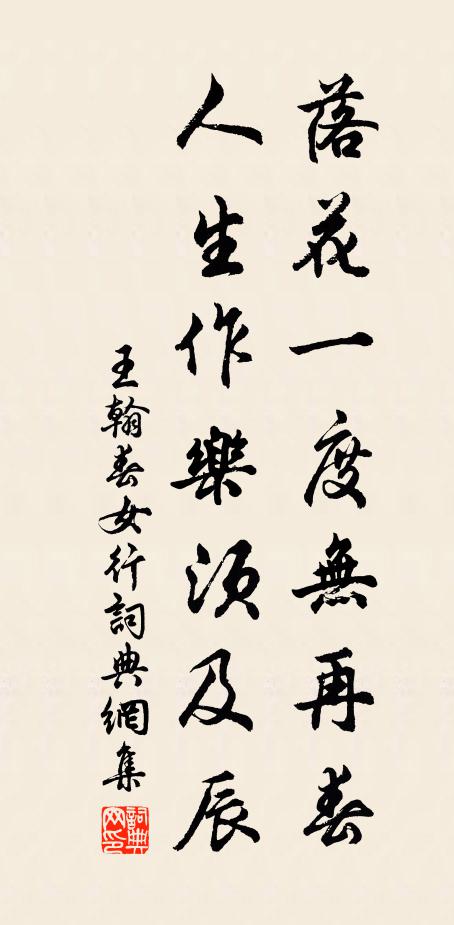 落花一度無再春
人生作樂須及辰
王翰春女行詞典網集
詞典網印